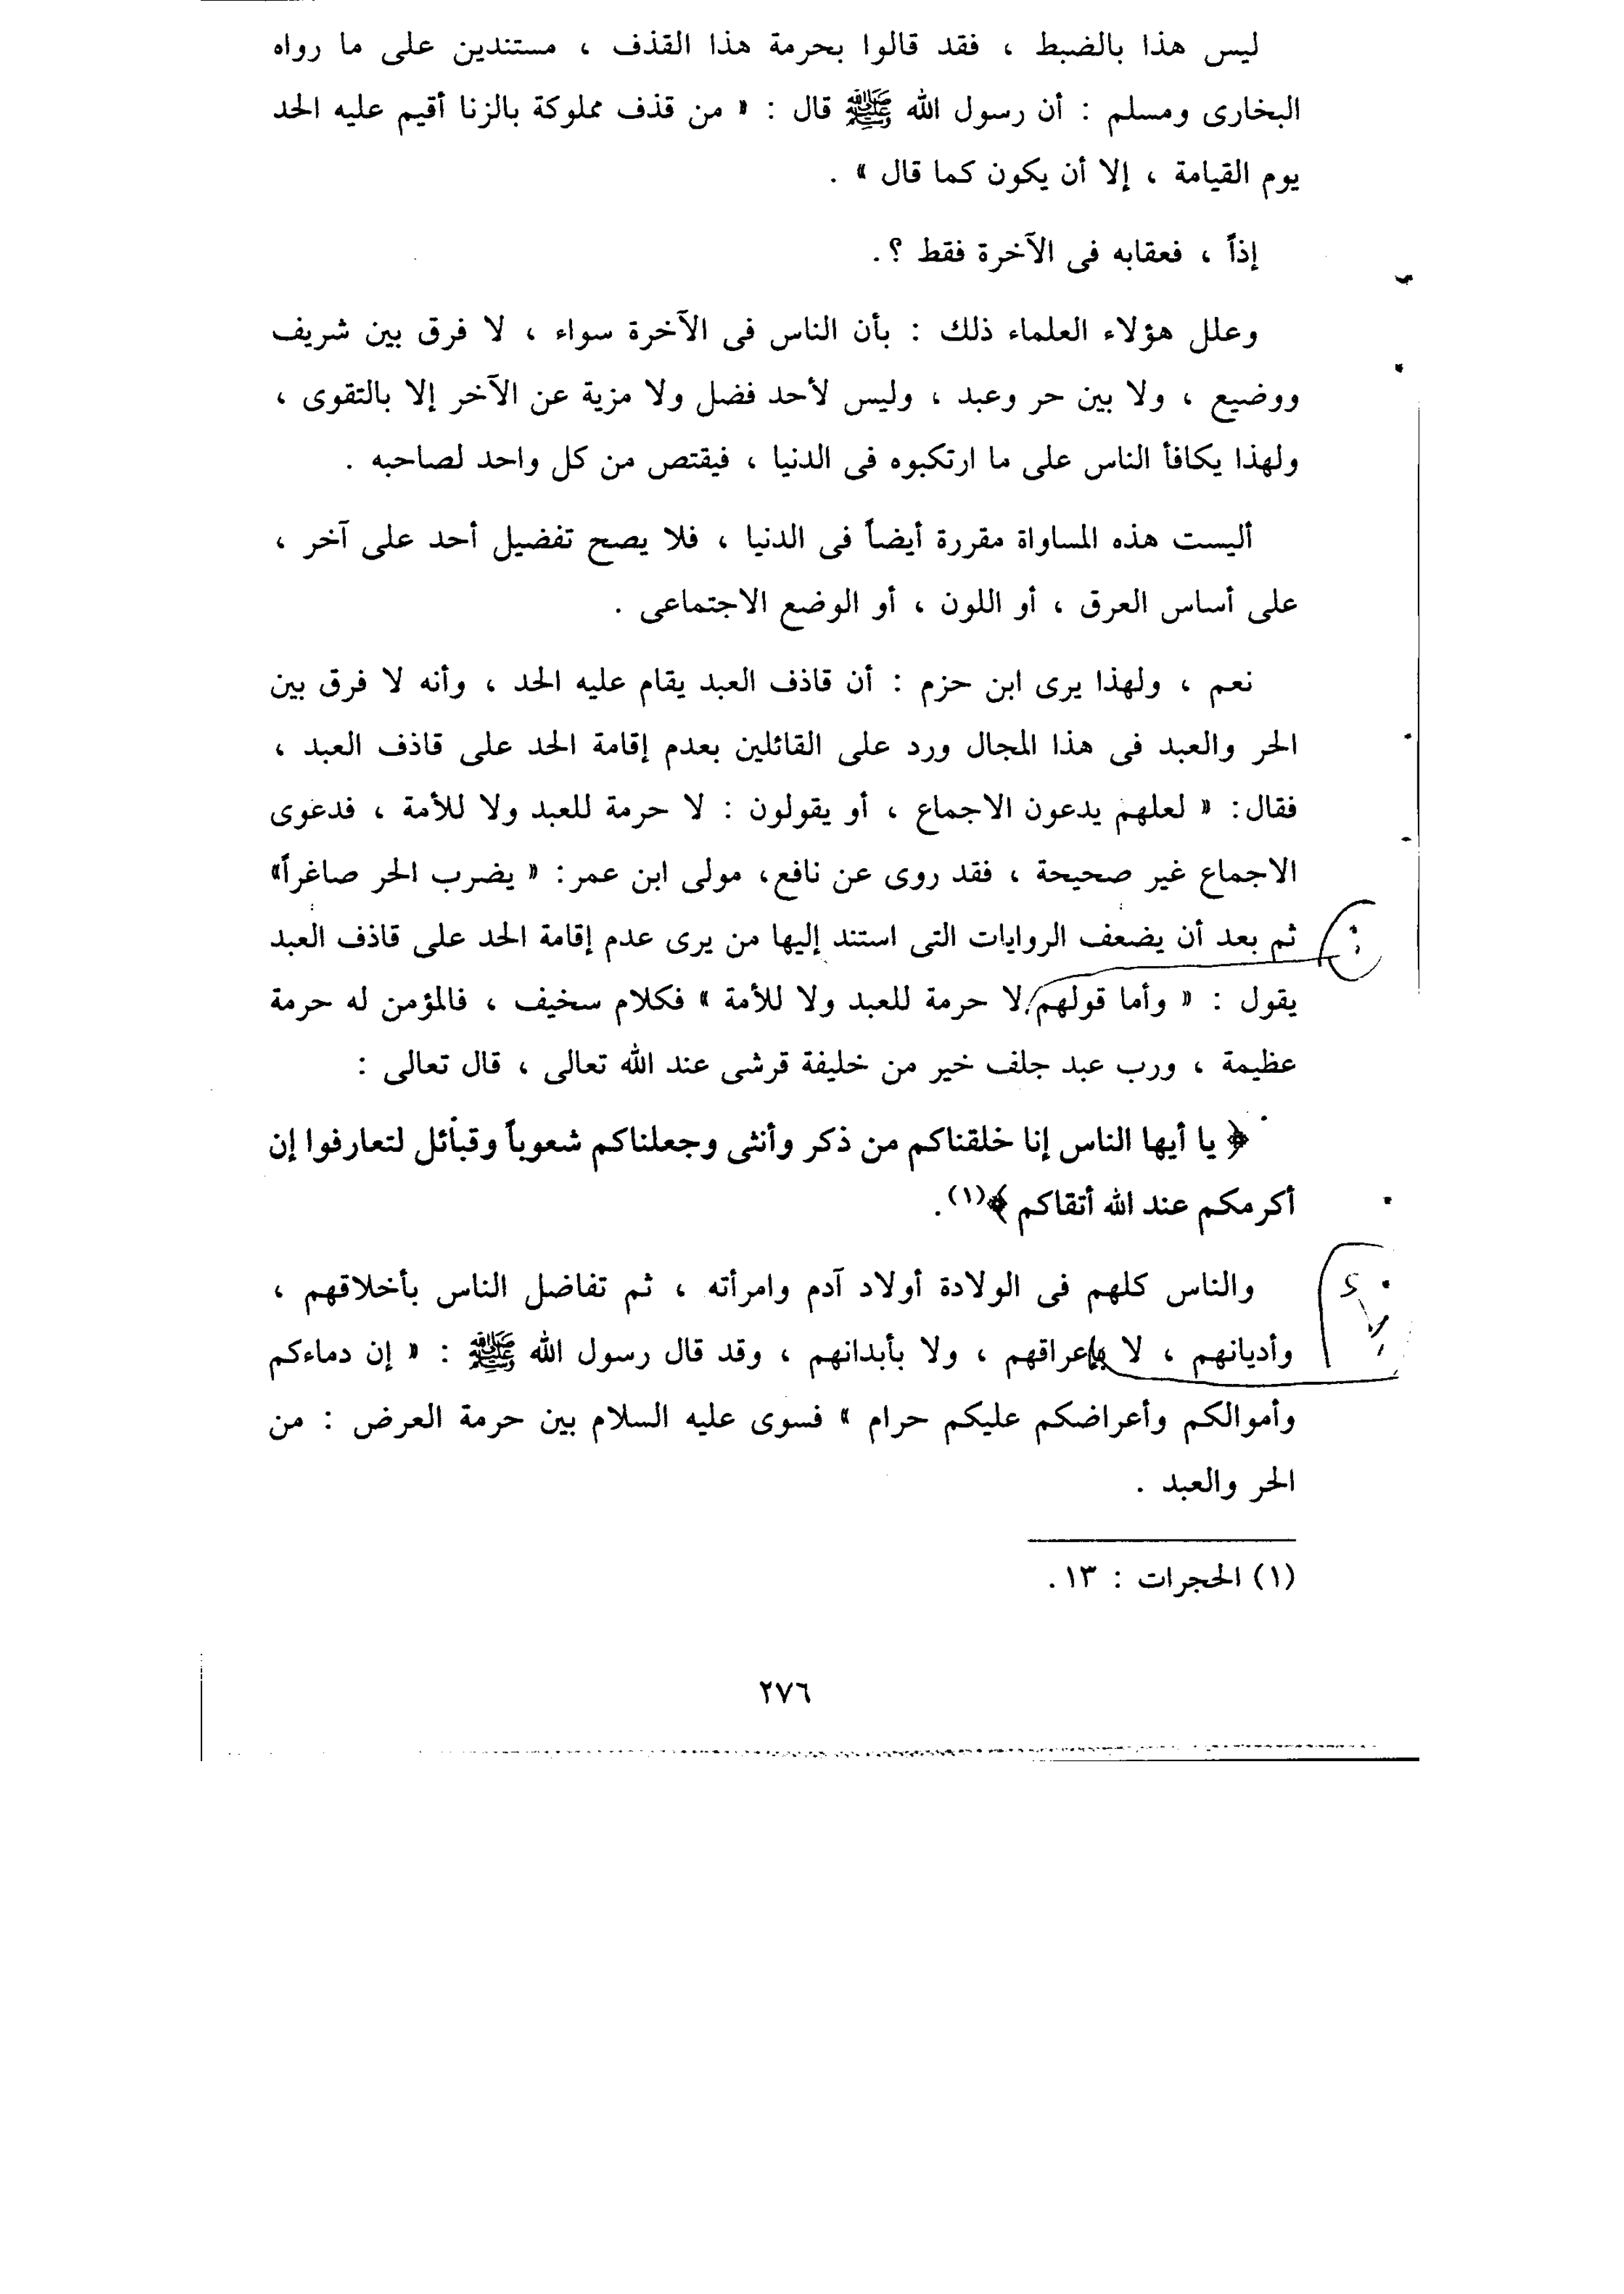 ليس هذا بالضبط ، فقد قالوا بحرمة هذا القذف ، مستندين على ما رواه
البخارى ومسلم : أن رسول الله ﷺ قال : « من قذف مملوكة بالزنا أقيم عليه الحد
يوم القيامة ، إلا أن يكون كما قال » .
إذاً ، فعقابه فى الآخرة فقط ؟ .
وعلل هؤلاء العلماء ذلك : بأن الناس فى الآخرة سواء ، لا فرق بين شريف
ووضيع ، ولا بين حر وعبد ، وليس لأحد فضل ولا مزية عن الآخر إلا بالتقوى ،
ولهذا يكافأ الناس على ما ارتكبوه فى الدنيا ، فيقتص من كل واحد لصاحبه .
أليست هذه المساواة مقررة أيضاً فى الدنيا ، فلا يصح تفضيل أحد على آخر ،
على أساس العرق ، أو اللون ، أو الوضع الاجتماعى .
نعم ، ولهذا يرى ابن حزم : أن قاذف العبد يقام عليه الحد ، وأنه لا فرق بين
الحر والعبد فى هذا المجال ورد على القائلين بعدم إقامة الحد على قاذف العبد ،
فقال : « لعلهم يدعون الاجماع ، أو يقولون : لا حرمة للعبد ولا للأمة ، فدعوى
الاجماع غير صحيحة ، فقد روى عن نافع، مولى ابن عمر : « يضرب الحر صاغراً»
ثم بعد أن يضعف الروايات التى استند إليها من يرى عدم إقامة الحد على قاذف العبد
يقول : « وأما قولهم لا حرمة للعبد ولا للأمة » فكلام سخيف ، فالمؤمن له حرمة
عظيمة ، ورب عبد جلف خير من خليفة قرشى عند الله تعالى ، قال تعالى :
﴿ يا أيها الناس إنا خلقناكم من ذكر وأنثى وجعلناكم شعوباً وقبائل لتعارفوا إن
أكرمكم عند الله أتقاكم ﴾(١).
والناس كلهم فى الولادة أولاد آدم وامرأته ، ثم تفاضل الناس بأخلاقهم ،
وأديانهم ، لا بإعراقهم ، ولا بأبدانهم ، وقد قال رسول الله ﷺ : « إن دماءكم
وأموالكم وأعراضكم عليكم حرام » فسوى عليه السلام بين حرمة العرض : من
الحر والعبد .
(١) الحجرات : ١٣ .
٢٧٦